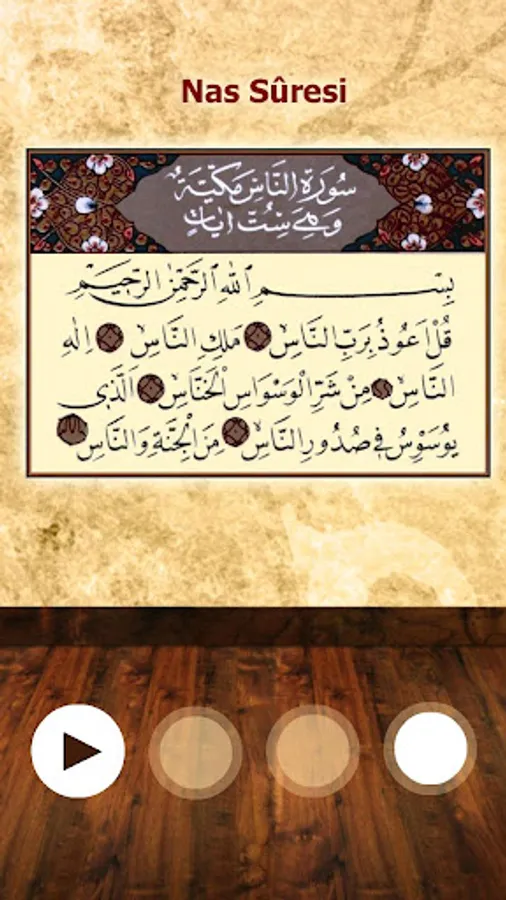 Nas Sûresi
سُورَةُ النَّاسِ مَكِّيَّةٌ
وَهِيَ سِتُّ اٰيَاتٍ
بِسْمِ اللّٰهِ الرَّحْمٰنِ الرَّحِيمِ
قُلْ اَعُوذُ بِرَبِّ النَّاسِۙ مَلِكِ النَّاسِۙ اِلٰهِ
النَّاسِۙ مِنْ شَرِّ الْوَسْوَاسِ الْخَنَّاسِۙ اَلَّذٖى
يُوَسْوِسُ فٖى صُدُورِ النَّاسِۙ مِنَ الْجِنَّةِ وَالنَّاسِ